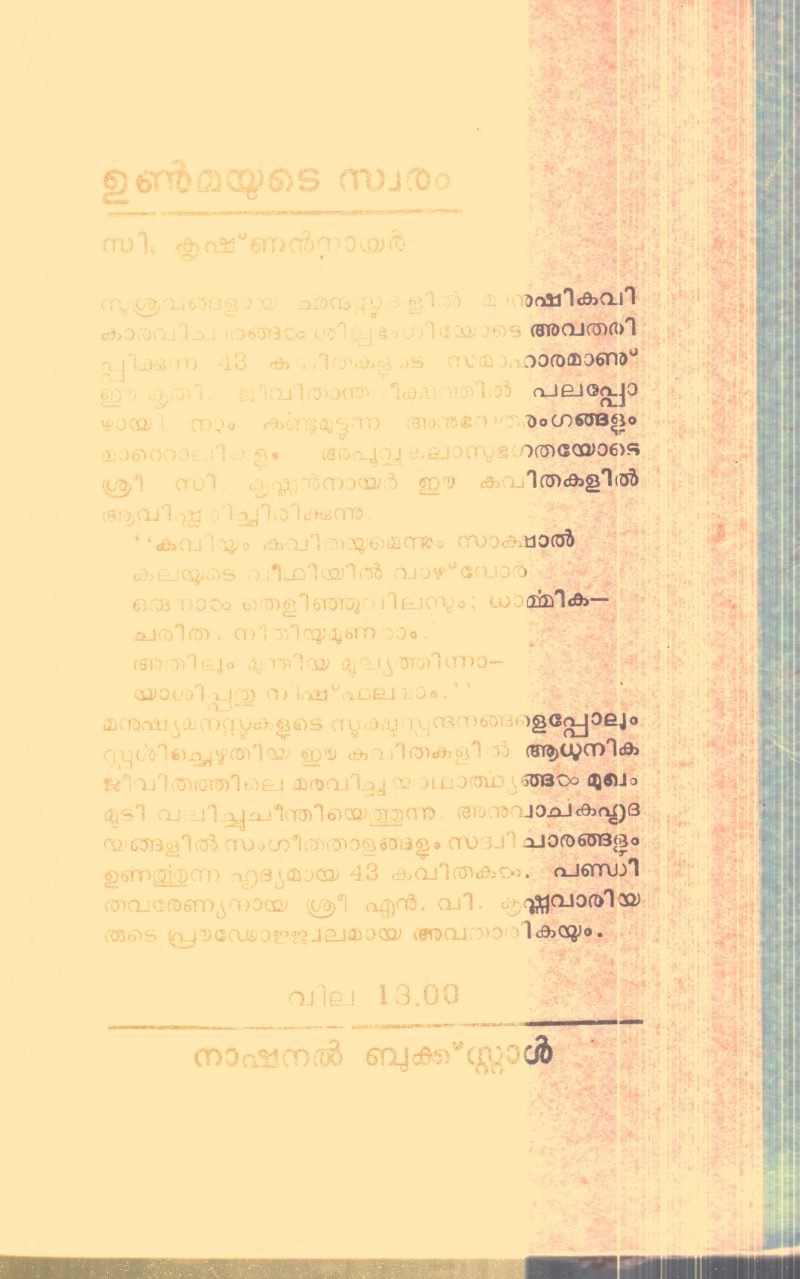 ഉൺമയുടെ സ്വരം
സി. കൃഷ്ണൻനായർ
സുശ്രവങ്ങളായ ഛന്ദസ്സുകളിൽ മാനുഷികവി
കാരവിചാരങ്ങൾ ശില്പഭംഗിയോടെ അവതരി
പ്പിക്കുന്ന 43 കവിതകളുടെ സമാഹാരമാണു്
ഈ കൃതി. ജീവിതാന്തരീക്ഷത്തിൽ പലപ്പോ
ഴായി നാം കണ്ടുമുട്ടുന്ന രംഗങ്ങളും
മാറൊലികളും അപൂർവ്വ കലാസുഭഗതയോടെ
ശ്രീ സി. കൃഷ്ണൻനായർ ഈ കവിതകളിൽ
ആവിഷ്ക്കരിച്ചിരിക്കുന്നു.
''കവിയും കവിതയുമെന്നും സാക്ഷാൽ
കലയുടെ വീഥിയിൽ വാഴ്‌വോർ
ഒരുനാൾ തെളിഞ്ഞുവിലസും; ധാർമ്മിക—
ചരിതം നീതിയുമുണരാം.
അതിലും മുന്തിയ മൂല്യത്തിന്നാ—
യാശിപ്പതു നിഷ്ഫലമാം.''
മനുഷ്യമനസ്സുകളുടെ സൂക്ഷ്മസ്പന്ദനങ്ങളെപ്പോലും
സ്പർശിച്ചെഴുതിയ ഈ കവിതകളിൽ ആധുനിക
ജീവിതത്തിലെ മരവിച്ച യാഥാർത്ഥ്യങ്ങൾ മുഖം
മൂടി വലിച്ചുചീന്തിയെത്തുന്നു. അനുവാചകഹൃദ
യങ്ങളിൽ സംഗീതതാളങ്ങളും സദ്വിചാരങ്ങളും
ഉണർത്തുന്ന ഹൃദ്യമായ 43 കവിതകൾ. പണ്ഡി
തവരേണ്യനായ ശ്രീ എൻ. വി. കൃഷ്ണവാരിയ
രുടെ പ്രൗഢോജ്ജ്വലമായ അവതാരികയും.
വില 13.00
നാഷനൽ ബുക്ക്സ്റ്റാൾ